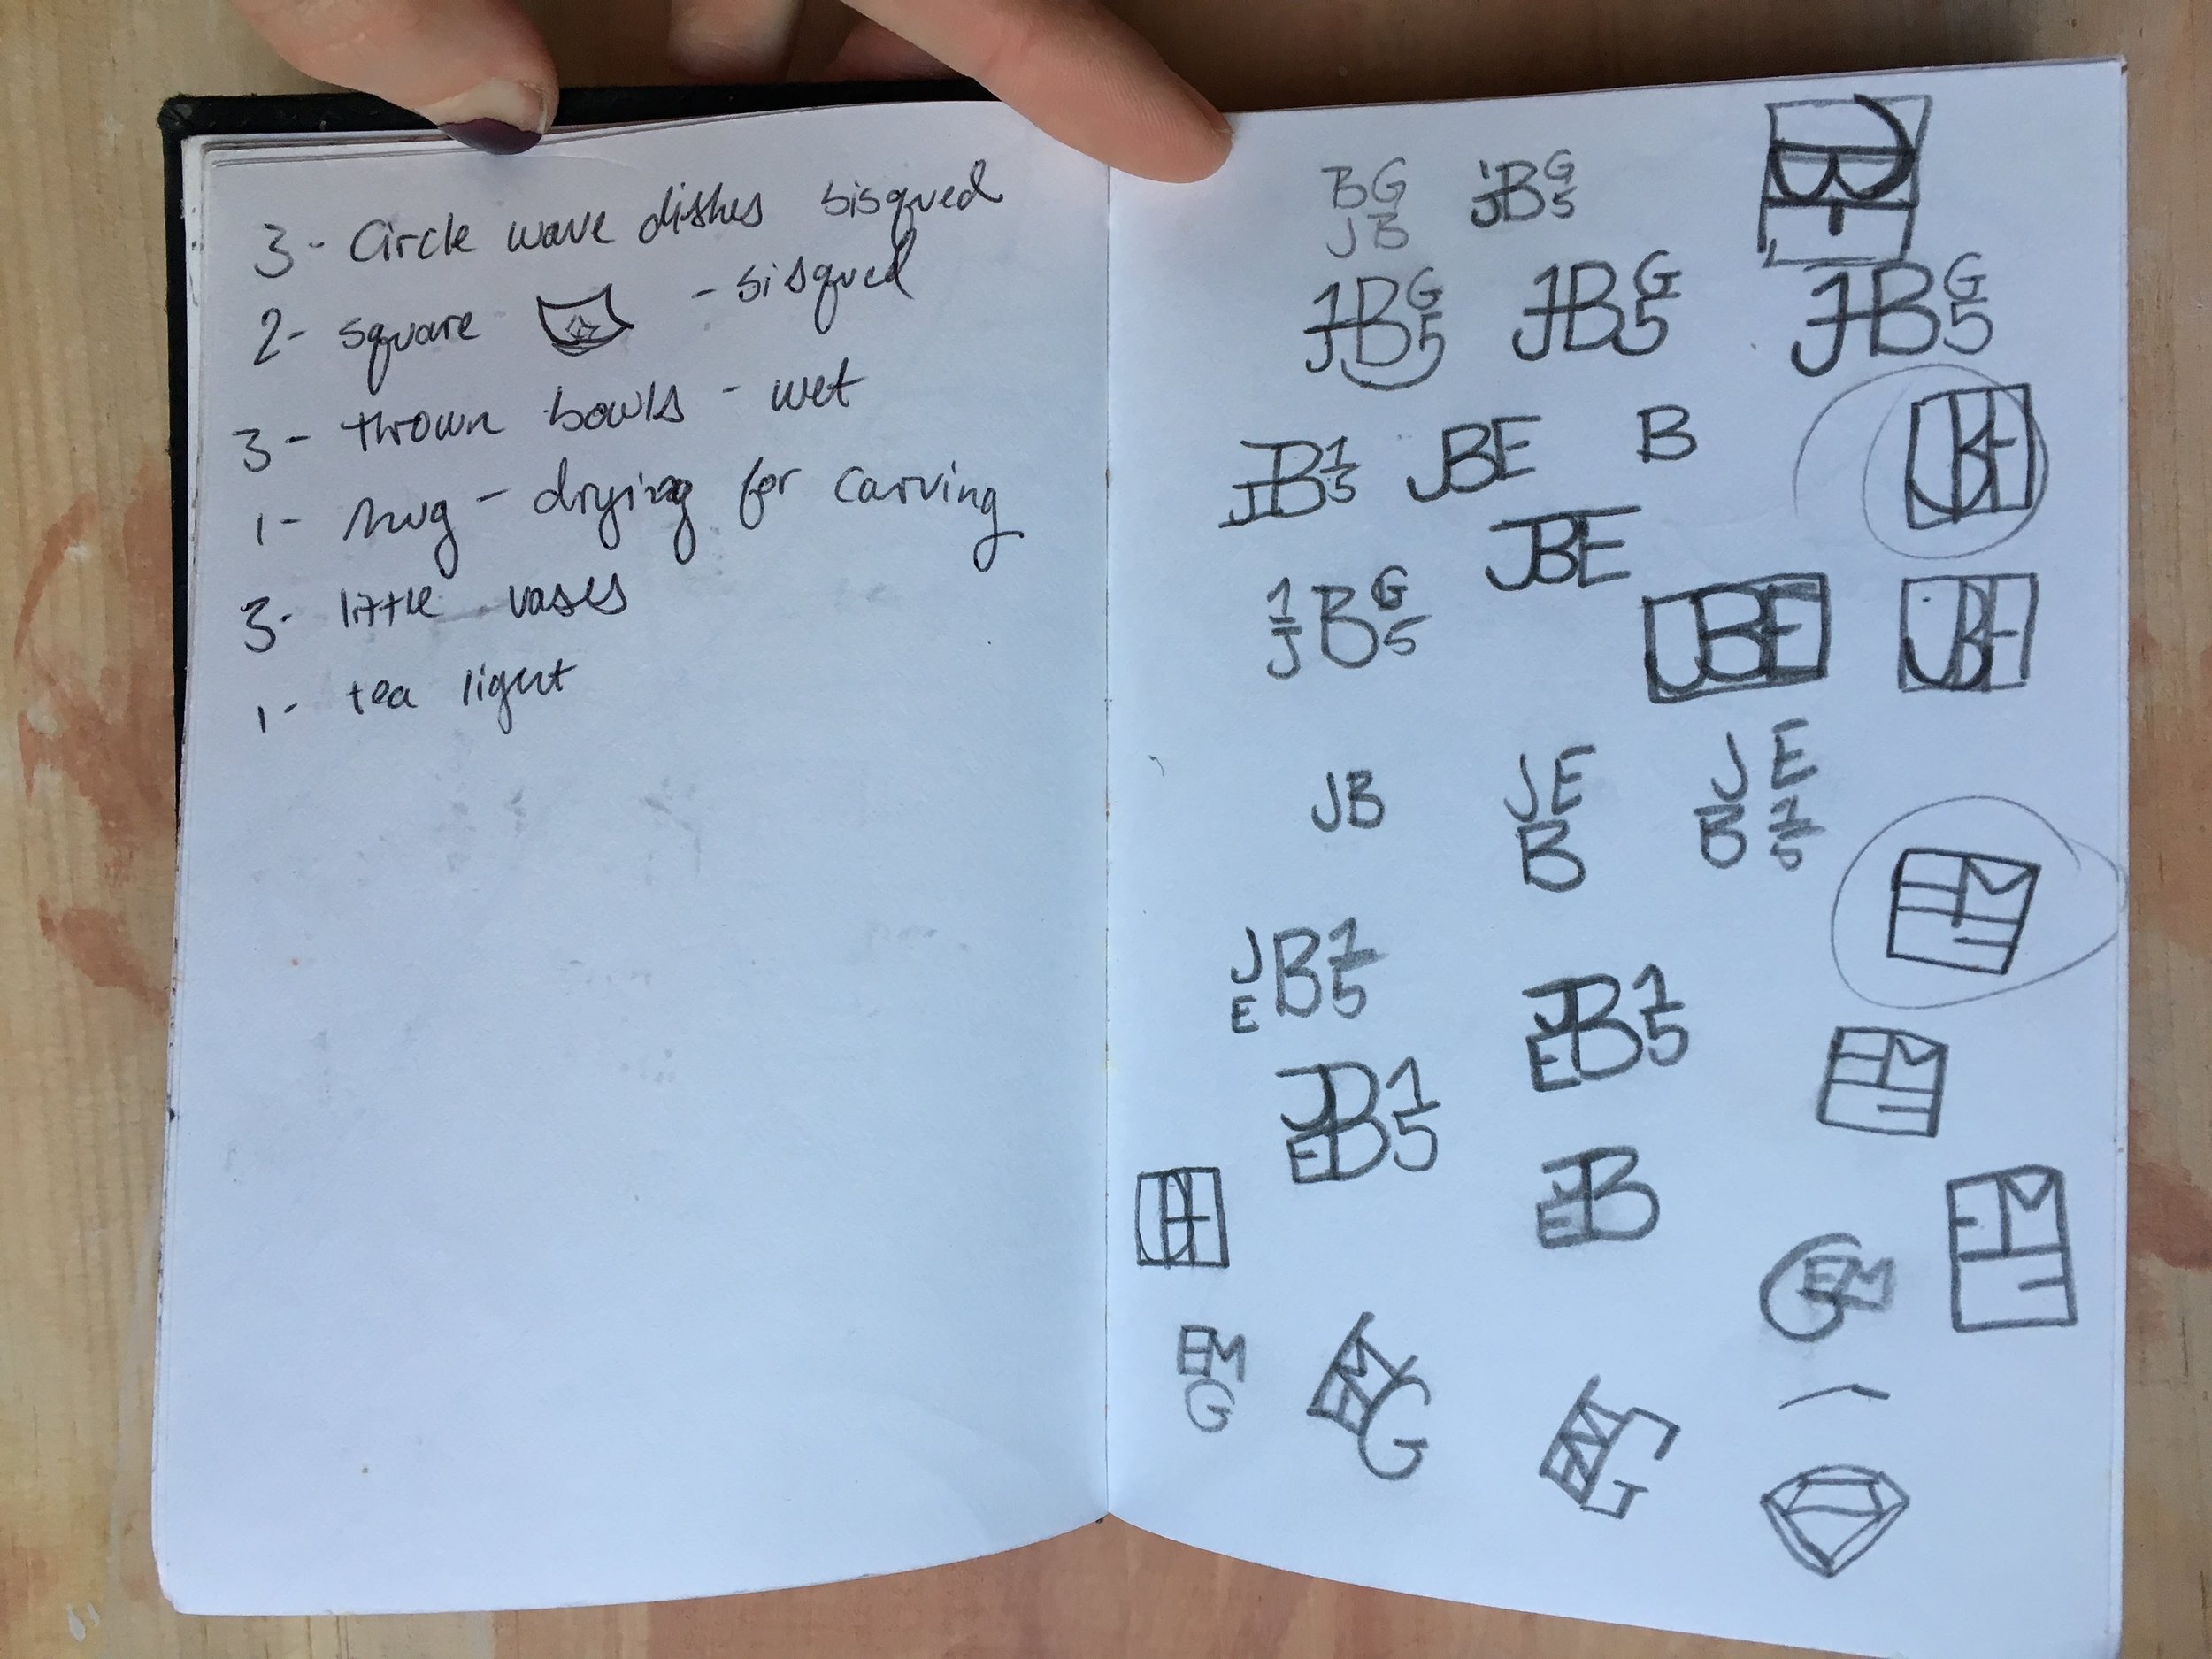 3 - Circle wave dishes bisqued
2 - square - bisqued
3 - thrown bowls - wet
1 - mug - drying for carving
3 - little vases
1 - tea light
BG
JB
JBG5
1JBG5
1JBG5
1JBG5
JB15
JBE
B
JBE
JBE
1JBG5
JBE
JBE
JB
JE
B
JE
B15
JB15
E
JB15
E
JB15
E
JB
E
GEM
EM
G
EM
G
EM
G